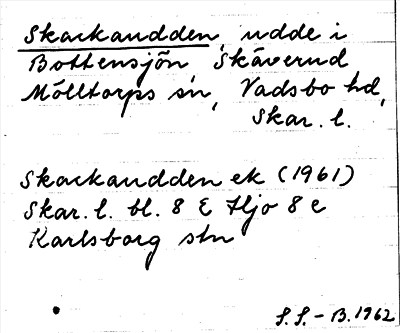 Skackaudden, udde i
Bottensjön, Skäverud
Mölltorps sn, Vadsbo hd,
Skar. l.
Skackaudden ek (1961)
Skar. l. bl. 8 E Hjo 8 e
Karlsborg stn
S.S. - B. 1962